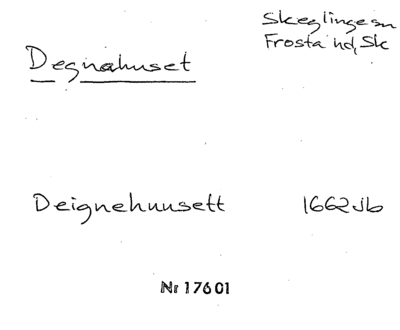 Skeglinge sn
Frosta hd, Sk
Degnahuset
Deignehuusett 1662 jb
Nr 17601